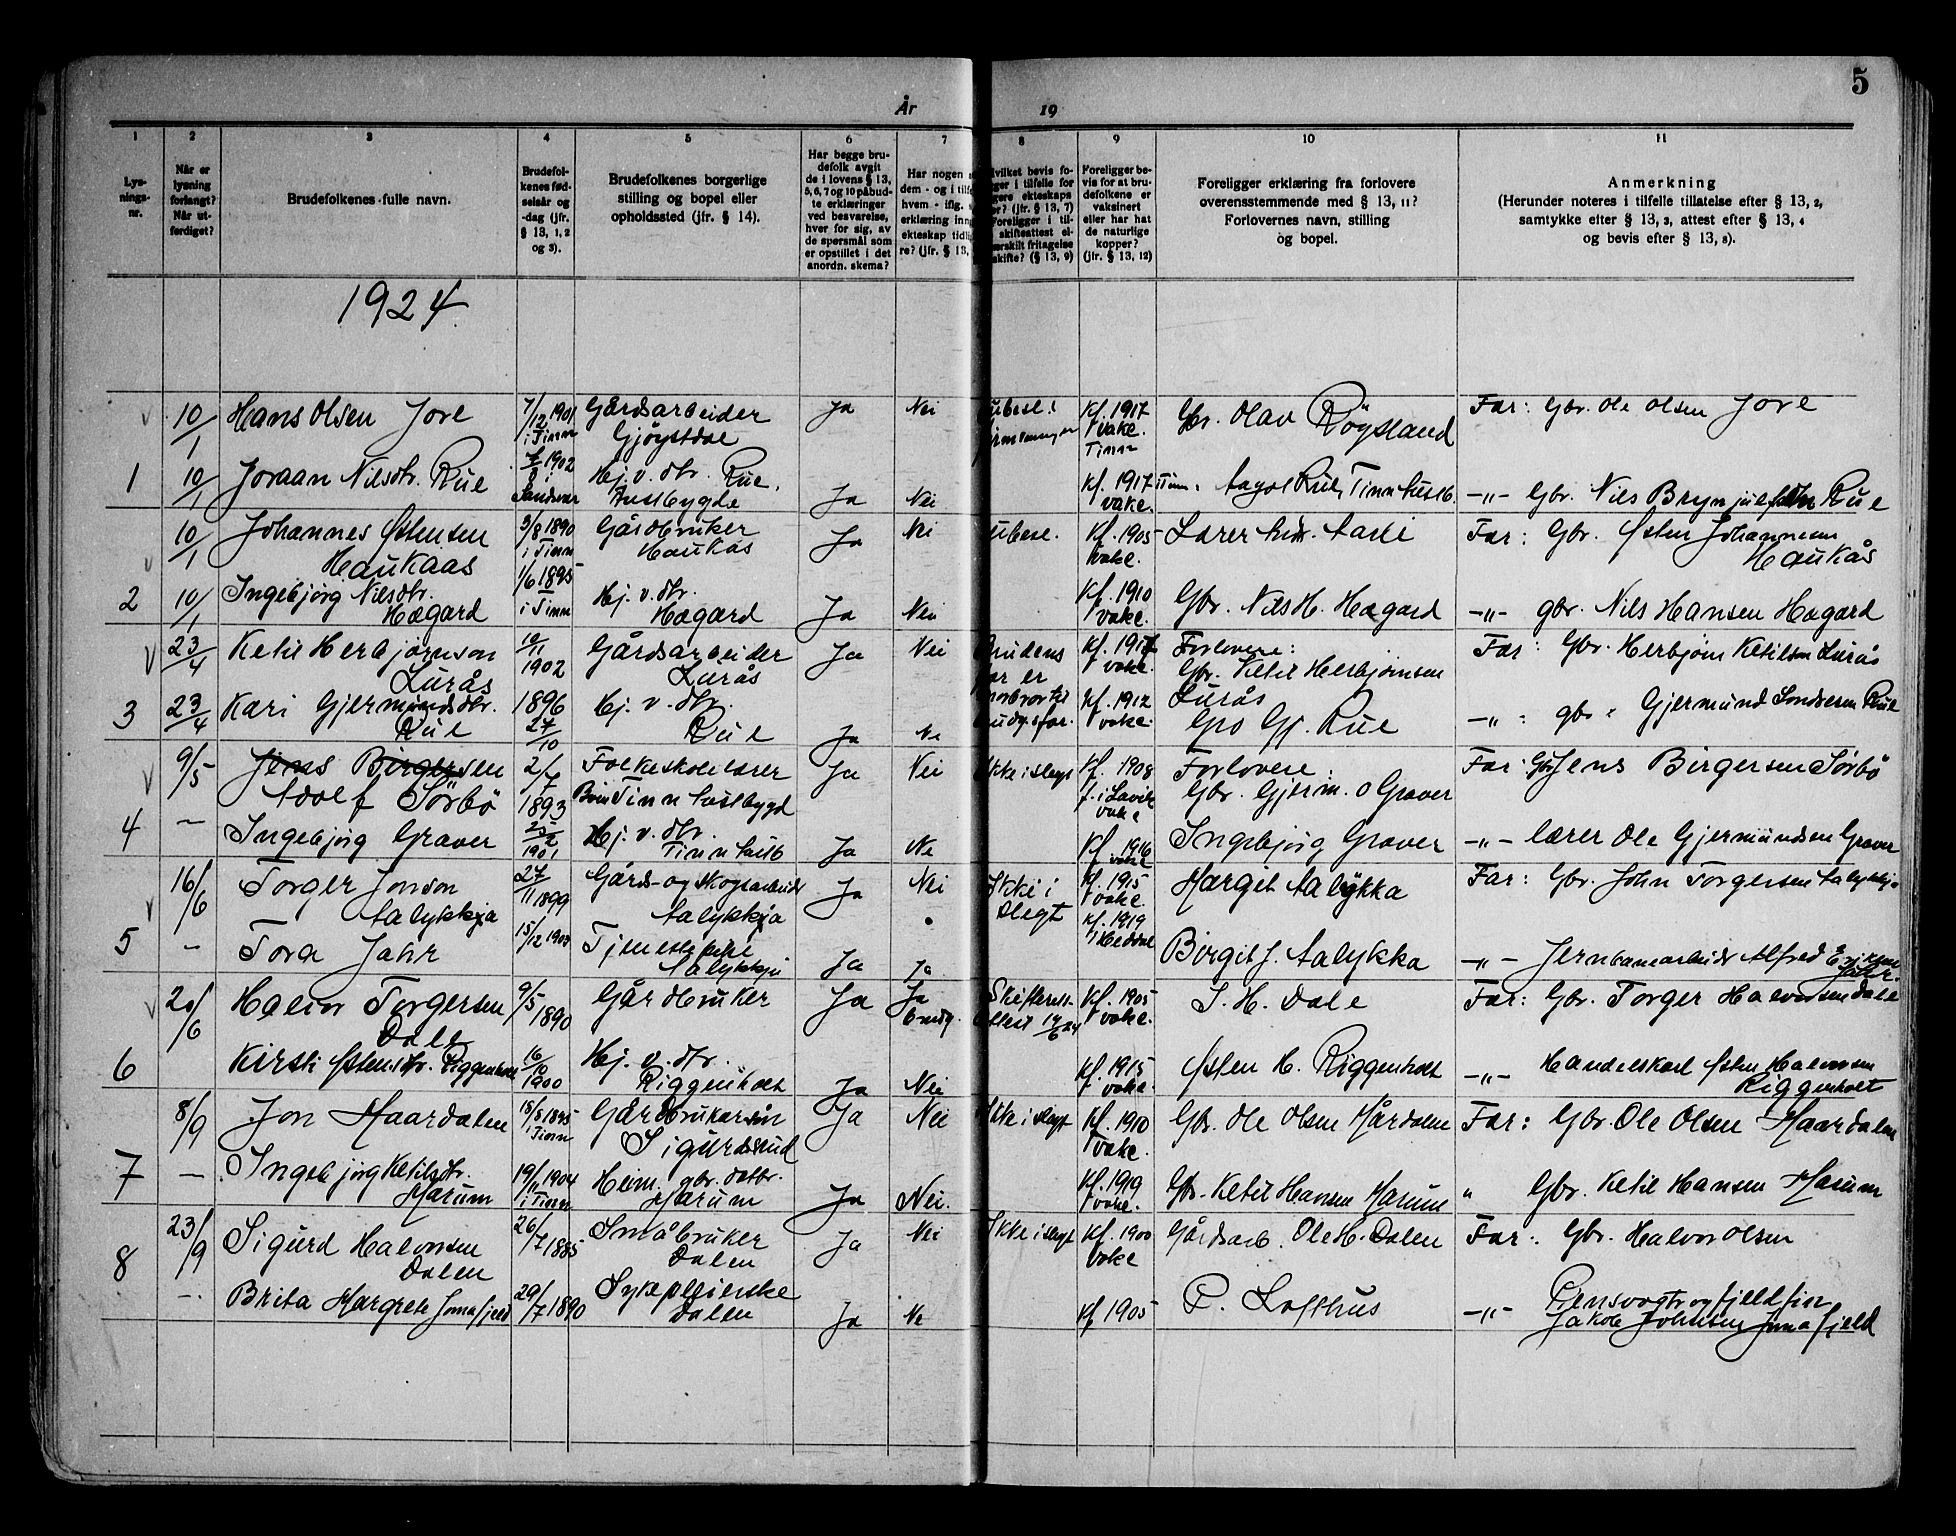 5
År 19
1
Lys-
nings-
nr.
2
Når er
lysning
forlangt?
Når ut-
ferdiget?
3
Brudefolkenes fulle navn.
4
Brudefol-
kenes fød-
selsår og
-dag (jfr.
§ 13, 1, 2
og 3).
5
Brudefolkenes borgerlige
stilling og bopel eller
opholdssted (jfr. § 14).
6
Har begge bru-
defolk avgit
de i lovens § 13,
5, 6, 7 og 10 påbud-
te erklæringer
ved besvarelse,
hver for sig, av
de spørsmål som
er opstillet i det
anordn. skema?
7
Har nogen
dem - og i tilf
hvem - iflg.
erklæring inn
ekteskap tidl
re? (jfr. § 13,
8
vilket bevis fo-
ger i tilfelle for
gere ekteskaps
or? (jfr. § 13, 7)
Foreligger i til-
skifteattest el-
ærskilt fritagelse
skifte? (§ 13, 9)
9
Foreligger be-
vis for at bru-
defolkene er
vaksinert
eller har hat
de naturlige
kopper?
(jfr. § 13, 12)
10
Foreligger erklæring fra forlovere
overensstemmende med § 13, 11?
Forlovernes navn, stilling
og bopel.
11
Anmerkning
(Herunder noteres i tilfelle tillatelse efter § 13, 2,
samtykke efter § 13, 3, attest efter § 13, 4
og bevis efter § 13, 8).
1924
10/1 Hans Olsen Jore 7/12 1901 i Tinn Gårdsarbeider Gjøystdal Ja Nei ubesl. Kf. 1917 vakc. Tinn Gbr. Olav Røysland Far: Gbr. Ole Olsen Jore
1 10/1 Joraan Nilsdtr. Rue 1902 Hj. v. dtr. Rue, Austbygde Ja Nei Kf. 1917 vakc. Aagot Rue, Tinn Austb. -"- Gbr. Nils Brynjulfsen Rue
10/1 Johannes Østensen Haukaas 3/8 1890 i Tinn Gårdbruker Haukås Ja Nei ubesl. Kf. 1905 vakc. Lærer Andr. Aasli Far: Gbr. Østen Johannesen Haukås
2 10/1 Ingebjørg Nilsdtr. Hægard 1/6 1895 i Tinn Hj. v. dtr. Hægard Ja Nei Kf. 1910 vakc. Gbr. Nils H. Hægard -"- gbr. Nils Hansen Hægard
23/4 Ketil Herbjørnson Lurås 10/11 1902 Gårdsarbeider Lurås Ja Nei Brudens far er morbror til brudg.s far. Kf. 1917 vakc. Forlovere: Gbr. Ketil Herbjørnsen Lurås Far: Gbr. Herbjørn Ketilsen Lurås
3 23/4 Kari Gjermundsdtr. Rue 1896 27/10 Hj. v. dtr. Rue Ja Ne Kf. 1912 vakc. Gro Gj. Rue -"- : gbr. Gjermund Sondresen Rue
9/5 Jens Birgersen Adolf Sørbø 2/7 1893 Folkeskolelærer Tinn Austbygd Ja Nei Ikke i slegt Kf. 1908 f. i Lavik vakc Forlovere: Gbr. Gjerm. O Graver Far: Gbr Jens Birgersen Sørbø
4 - Ingebjørg Graver 25/2 1901 Hj. v. dtr. Tinn Austb Ja Ne Kf. 1916 vakc Ingebjørg Graver -"- lærer Ole Gjermundsen Graver
16/6 Torger Jonson Aalykkja 27/11 1899 Gårds- og skogsarbeider Aalykkja Ja Nei Ikke i slegt Kf. 1915 vakc. Margit Aalykka Far: Gbr. John Torgersen Aalykkja
5 - Tora Jahr 15/12 1903 Tjenestepike Aalykkja Ja Ja Kf. 1919 i Heddal Birgit J. Aalykka -"- Jernbanearbeider Alfred Eriksen Jahr.
20/6 Halvor Torgersen Dale 9/5 1890 Gårdbruker Ja Ja brudg. Skifterett- attest 14/6 24 Kf. 1905 vakc. T. H. Dale Far: Gbr. Torger Halvorsen Dale
6 Kirsti Østensdtr. Riggenholt 16/10 1900 Hj. v. dtr. Riggenholt Ja Nei Kf. 1915 vakc. Østen H. Riggenholt -"- Handelskarl Østen Halvorsen Riggenholt
8/9 Jon Haardalen 18/8 1895 i Tinn Gårdbrukersøn Sigurdsrud Ja Nei Ikke i slegt Kf. 1910 vakc. Gbr. Ole Olsen Hårdalen Far: Gbr. Ole Olsen Haardalen
7 - Ingebjørg Ketilsdtr. Marum 19/11 1904 i Tinn Heim. gbr. dattr. Marum Ja Nei. Kf. 1919 vakc. Gbr. Ketil Hansen Marum " Gbr. Ketil Hansen Marum
8 23/9 Sigurd Halvorsen Dalen 26/7 1885 Småbruker Dalen Ja Nei Ikke i slegt Kf. 1900 vakc Gårdsarb. Ole H. Dalen Far: Gbr. Halvor Olsen
- Brita Margrete Jomafjeld 29/7 1890 Sykepleierske Dalen Ja Ne Kf 1905 P. Lofthus -"- Rensvogter og fjeldfin Jakob Johnsen Jomafjeld